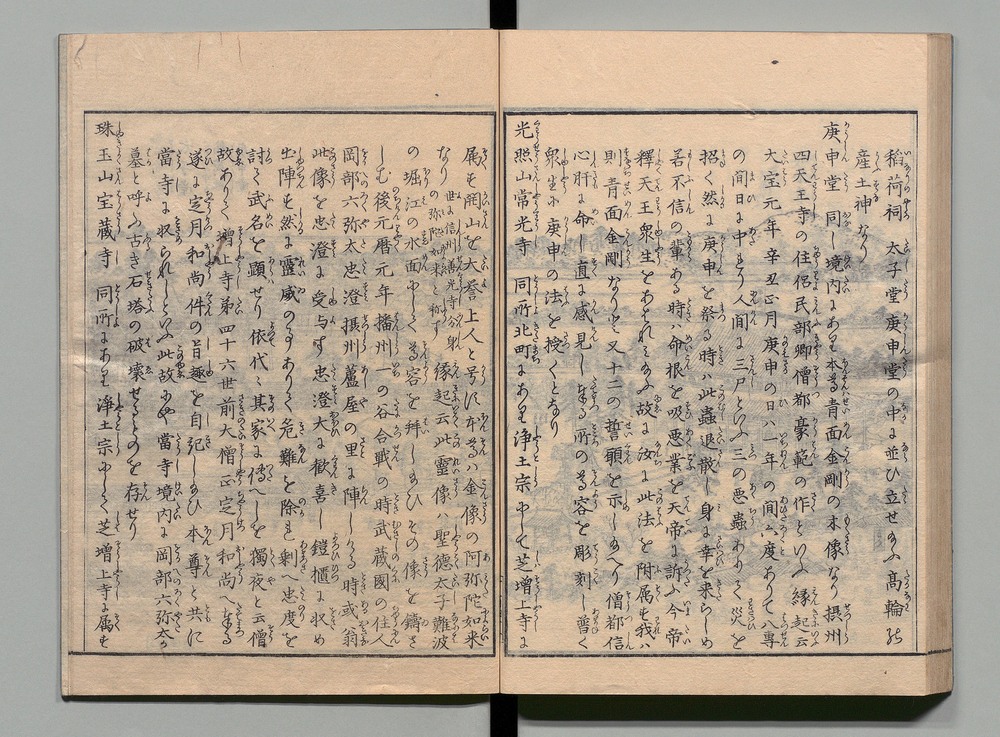 稲荷祠 太子堂庚申堂の中に並ひ立せ給ふ高輪の
産土神なり
庚申堂 同し境内にあり本尊青面金剛の木像なり摂州
四天王寺の住侶民部卿僧都豪範の作といふ縁起云
大宝元年辛丑正月庚申の日八一年の間六度ありて八專
の間日に中まり人間に三尸といふ三の悪蟲ありて災を
招く然に庚申を祭る時ハ此蟲退散し身に幸を来らしめ
若不信の輩ある時ハ命根を吸悪業を天帝に訴ふ今帝
釋天王衆生をあはれみ給ふ故に汝に此法を附属す我ハ
則青面金剛なりと又十二の誓願を示し給へり僧都信
心肝に命し直に感見し奉る所の尊容を彫刻し普く
衆生に庚申の法を授くとなり
光照山常光寺 同所北町にあり浄土宗にして芝増上寺に
属す開山を大誉上人と号す本尊ハ金像の阿弥陀如来
なり 世に信州善光寺分身の弥陀如来と称す 縁起云此霊像ハ聖徳太子難波
の堀江の水面にして尊容を拝し給ひその像を鑄さ
しむ後元暦元年播州一の谷合戰の時武蔵國の住人
岡部六弥太忠澄摂州蘆屋の里に陣しける時或翁
此像を忠澄に受与す忠澄大に歓喜し鎧櫃に収め
出陣す然に霊威のすありて危難を除れ剰へ忠度を
討て武名を顕せり依代〻其家に傳へしを獨夜と云僧
故ありて増上寺第四十六世前大僧正定月和尚へ奉る
遂に定月和尚件の旨趣を自記し給ひ本尊と共に
當寺に収られしといふ此故にや當寺境内に岡部六弥太か
墓と呼ふ古き石塔の破壊せしものを存せり
珠玉山宝蔵寺 同所にあり浄土宗にして芝増上寺に属す